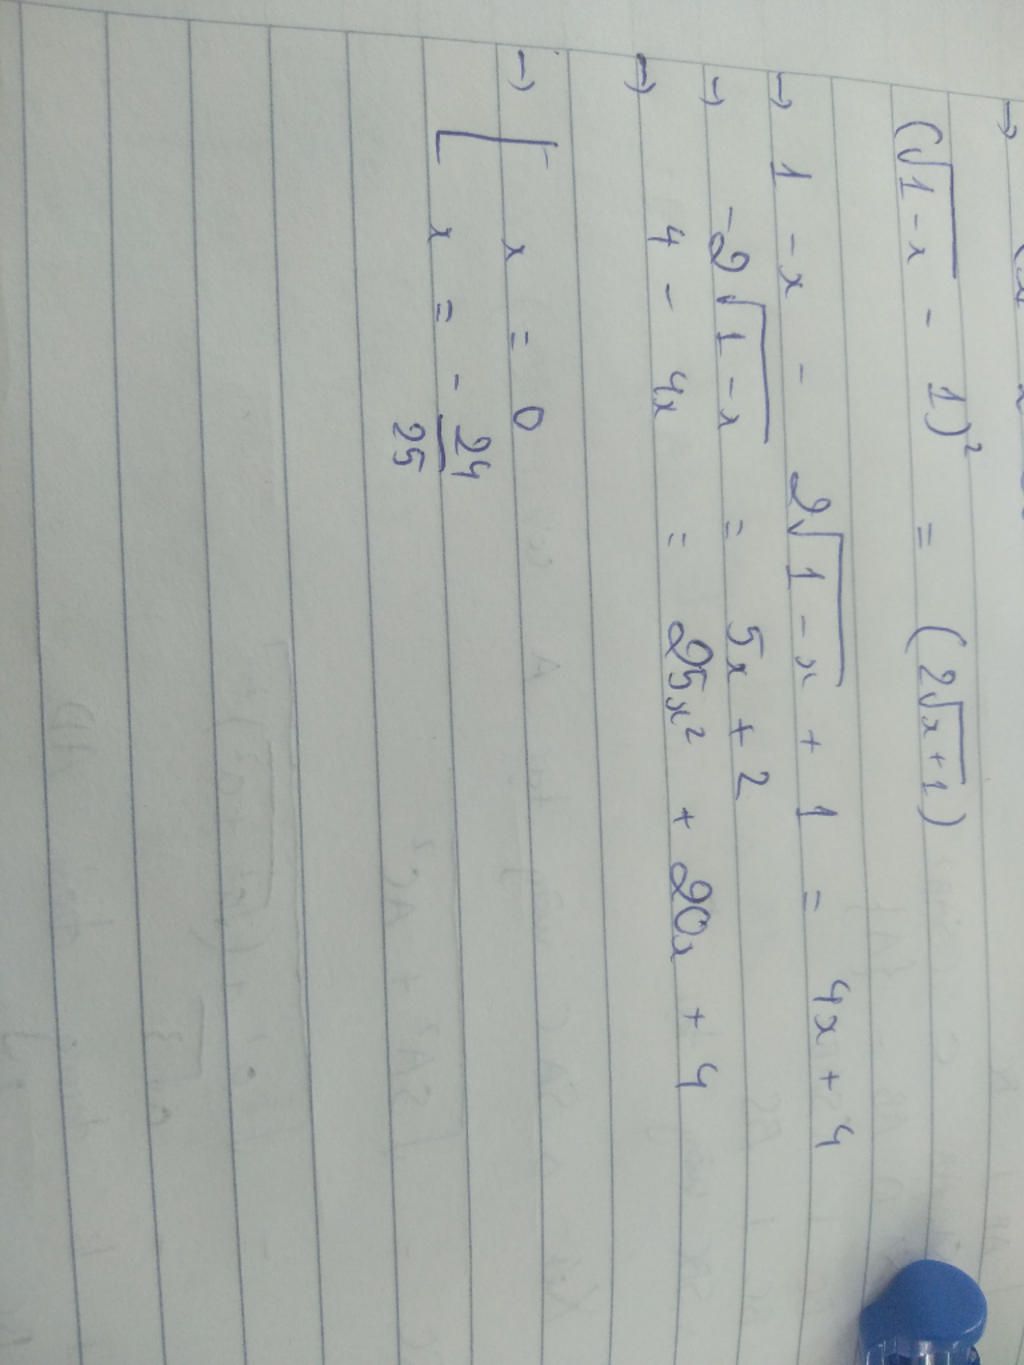 →
(√1-x - 1)² = (2√x+1)
→ 1 - x - 2√1-x + 1 = 4x + 4
→ -2√1-x = 5x + 2
→ 4 - 4x = 25x² + 20x + 4
→ [ x = 0
x = - 24/25